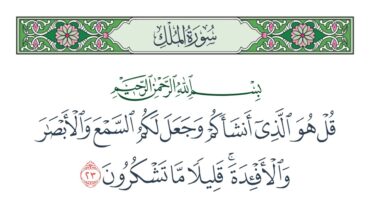 سُورَةُ الْمُلْكِ
بِسْمِ اللَّهِ الرَّحْمَٰنِ الرَّحِيمِ
قُلْ هُوَ ٱلَّذِىٓ أَنشَأَكُمْ وَجَعَلَ لَكُمُ ٱلسَّمْعَ وَٱلْأَبْصَٰرَ
وَٱلْأَفْـِٔدَةَ ۖ قَلِيلًا مَّا تَشْكُرُونَ ٢٣